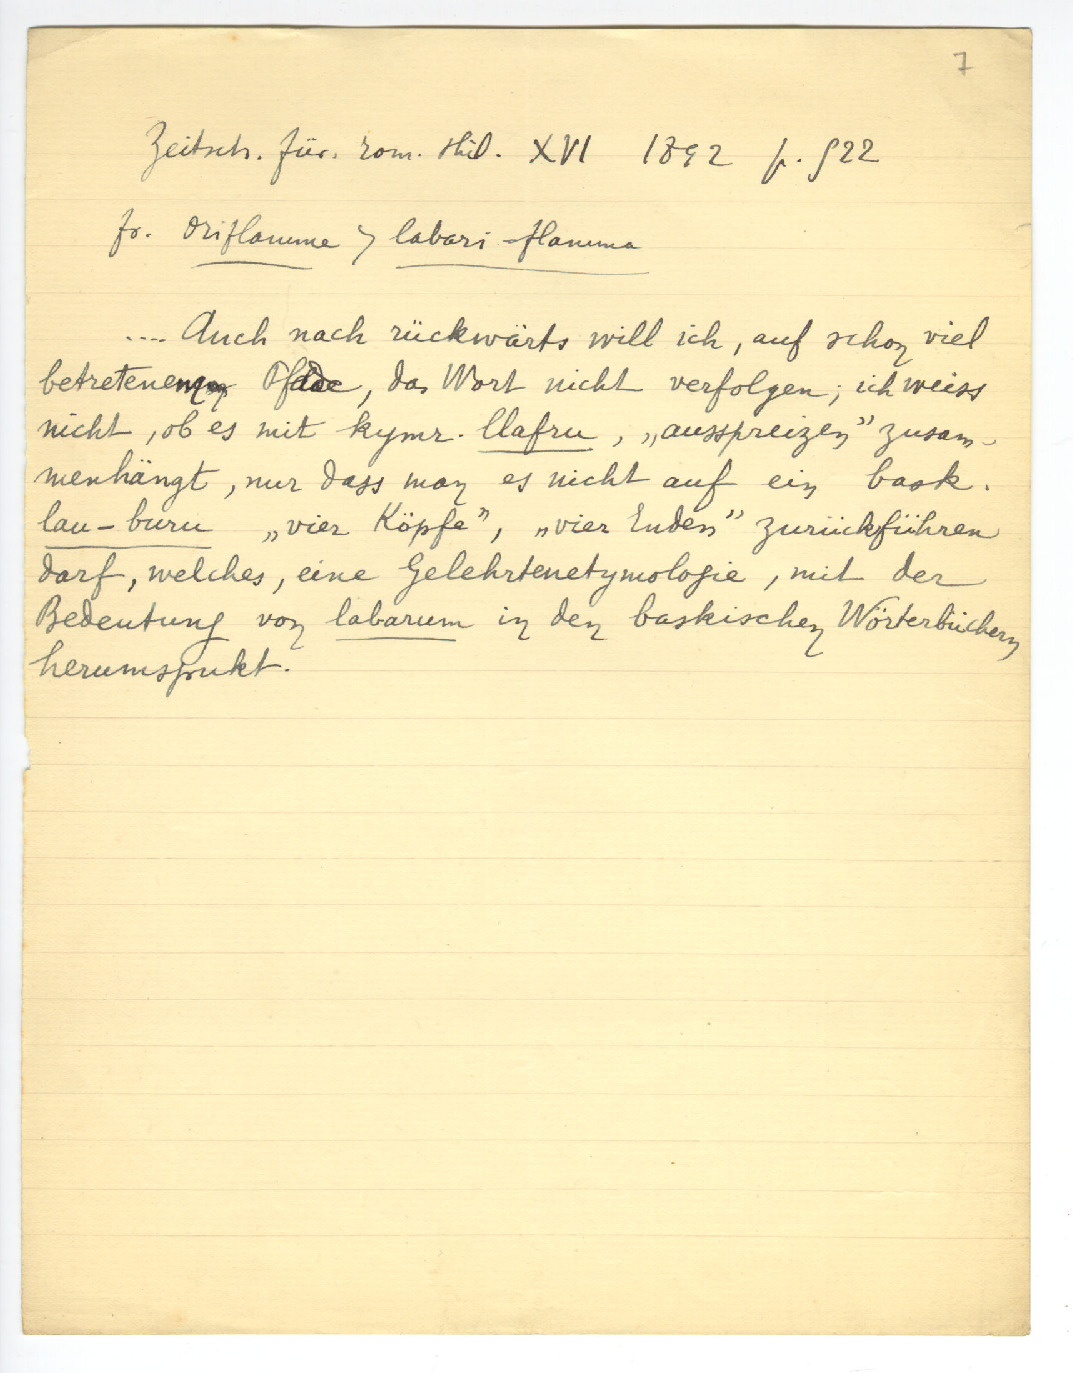 7
Zeitsch. für. rom. Phil. XVI 1892 p. 522
fr. Oriflamme > labari-flamma
.... Auch nach rückwärts will ich, auf schon viel
betretenem Pfade, das Wort nicht verfolgen; ich weiss
nicht, ob es mit kymr. llafru, „ausspreizen" zusam-
menhängt, nur dass man es nicht auf ein bask.
lau-buru „vier Köpfe", „vier Enden" zurückführen
darf, welches, eine Gelehrtenetymologie, mit der
Bedeutung von labarum in den baskischen Wörterbüchern
herumspukt.